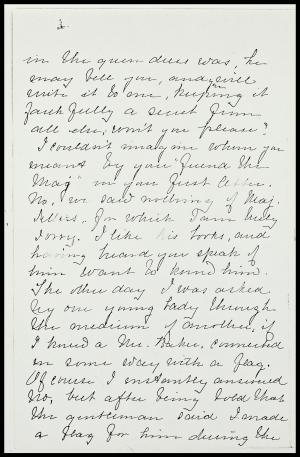 in the queen dies was, he
may tell you, and you will
write it to me, keeping it
faithfully a secret from
all else, won't you please?
I couldn't imagine whom you
meant by your "friend the
Maj" in your first letter.
No, we said nothing of Maj.
for which I am very
sorry. I like his books, and
having heard you speak of
him want to know him.
The other day I was asked
by one young lady through
the medium of another, if
I knew a Mr. Baker, connected
in some way with a flag.
Of course I instantly answered
No, but after being told that
the gentleman said I made
a flag for him during the